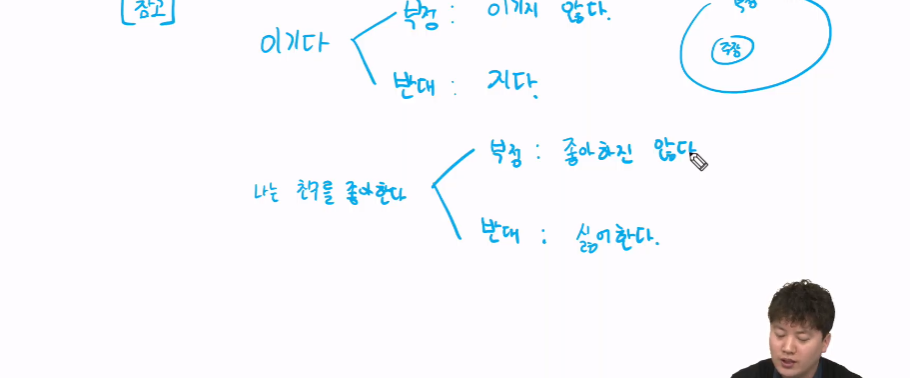 [참고]
이기다
부정 : 이기지 않다.
반대 : 지다.
주장
나는 친구를 좋아한다
부정 : 좋아하진 않다
반대 : 싫어한다.